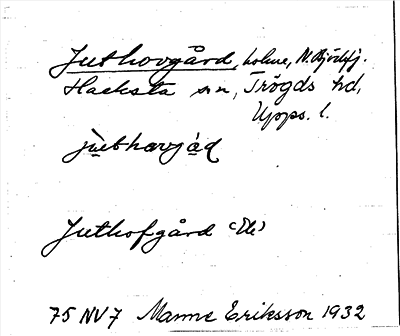 Juthovgård, holme, N. Björkfj.
Hacksta sn, Trögds hd,
Upps. l.
Juthofgård (Ek)
75 NV7 Manne Eriksson 1932